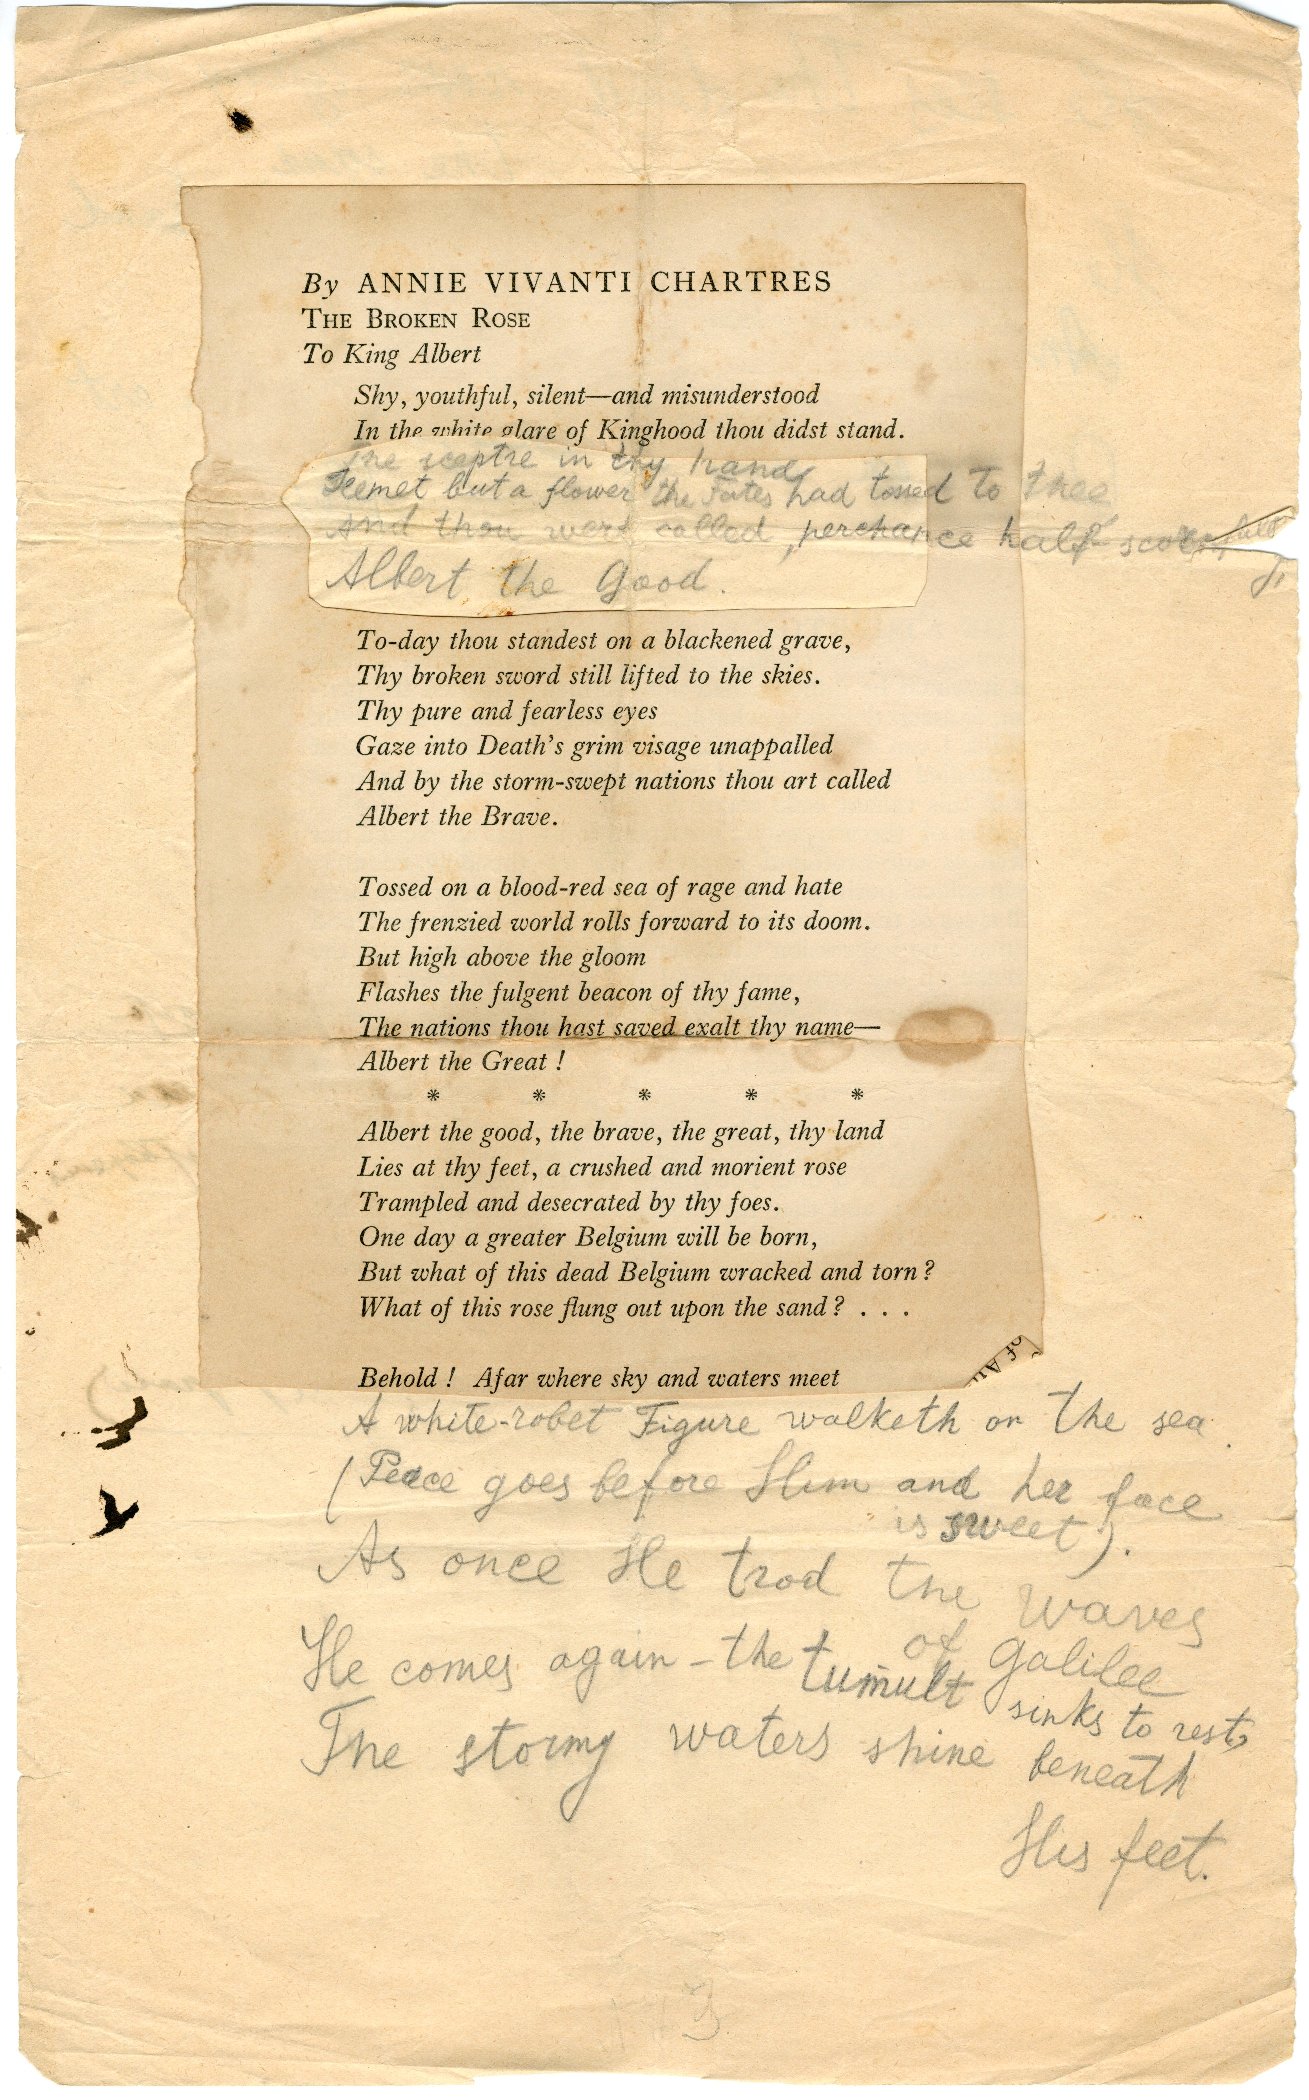 By ANNIE VIVANTI CHARTRES
THE BROKEN ROSE
To King Albert
Shy, youthful, silent—and misunderstood
In the white glare of Kinghood thou didst stand.
The sceptre in thy hand
Seemet but a flower the Fates had tossed to thee
And thou wert called, perchance half-scornfully
Albert the Good.
To-day thou standest on a blackened grave,
Thy broken sword still lifted to the skies.
Thy pure and fearless eyes
Gaze into Death's grim visage unappalled
And by the storm-swept nations thou art called
Albert the Brave.
Tossed on a blood-red sea of rage and hate
The frenzied world rolls forward to its doom.
But high above the gloom
Flashes the fulgent beacon of thy fame,
The nations thou hast saved exalt thy name—
Albert the Great !
* * * * *
Albert the good, the brave, the great, thy land
Lies at thy feet, a crushed and morient rose
Trampled and desecrated by thy foes.
One day a greater Belgium will be born,
But what of this dead Belgium wracked and torn ?
What of this rose flung out upon the sand ? . . .
of Au
Behold ! Afar where sky and waters meet
A white-robet Figure walketh on the sea.
(Peace goes before Him and her face
is sweet).
As once He trod the waves
of Galilee
He comes again – the tumult sinks to rest,
The stormy waters shine beneath
His feet.